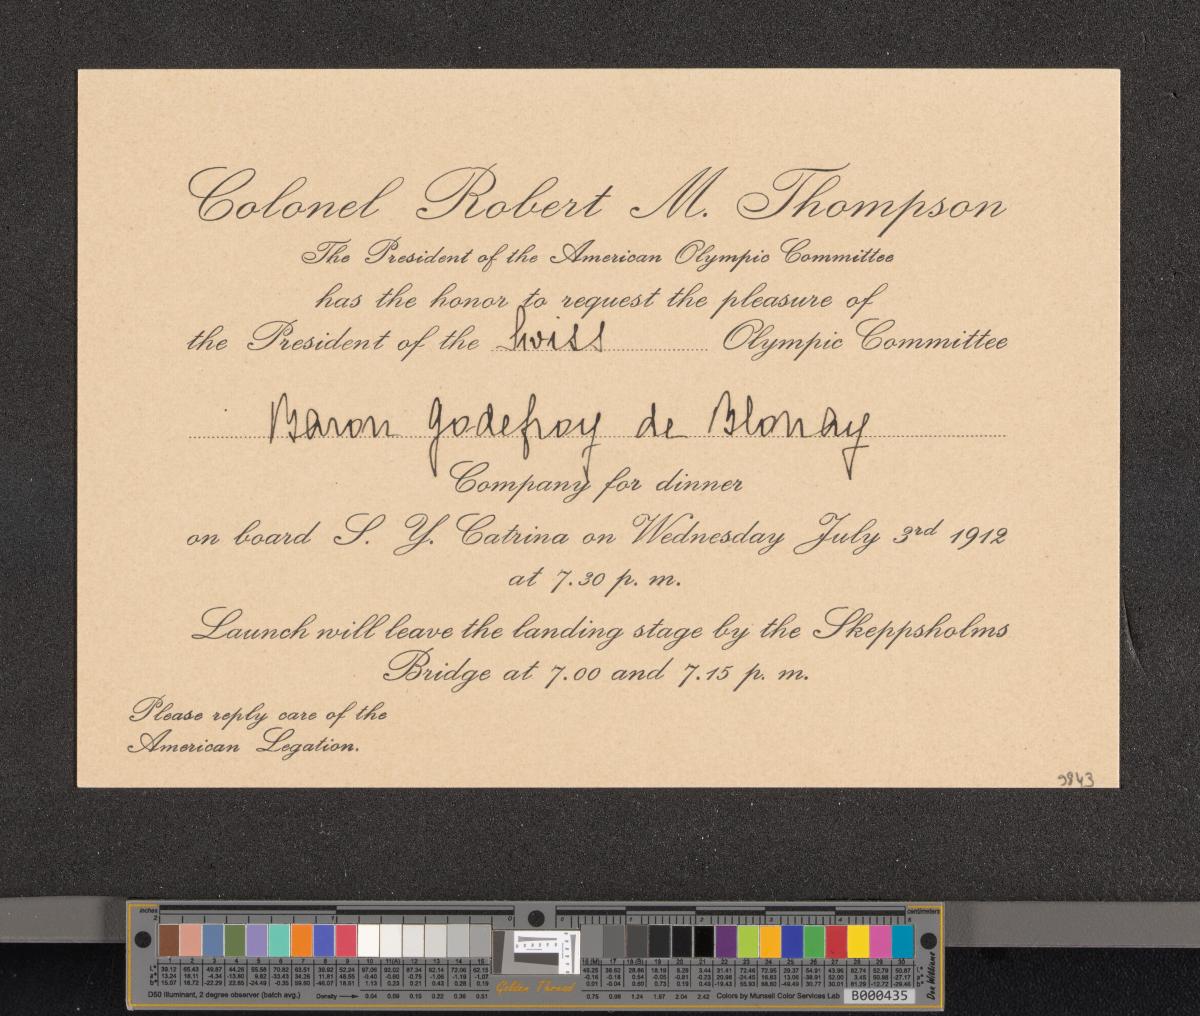 Colonel Robert M. Thompson
The President of the American Olympic Committee
has the honor to request the pleasure of
the President of the Swiss Olympic Committee
Baron Godefroy de Blonay
Company for dinner
on board S. Y. Catrina on Wednesday July 3rd 1912
at 7.30 p. m.
Launch will leave the landing stage by the Skeppsholms
Bridge at 7.00 and 7.15 p. m.
Please reply care of the
American Legation.
9843
inches
centimeters
D50 Illuminant, 2 degree observer (batch avg.)
Density
0.04 0.09 0.15 0.22 0.36 0.51
Golden Thread
0.75 0.98 1.24 1.67 2.04 2.42
Colors by Munsell Color Services Lab
B000435
Don Williams